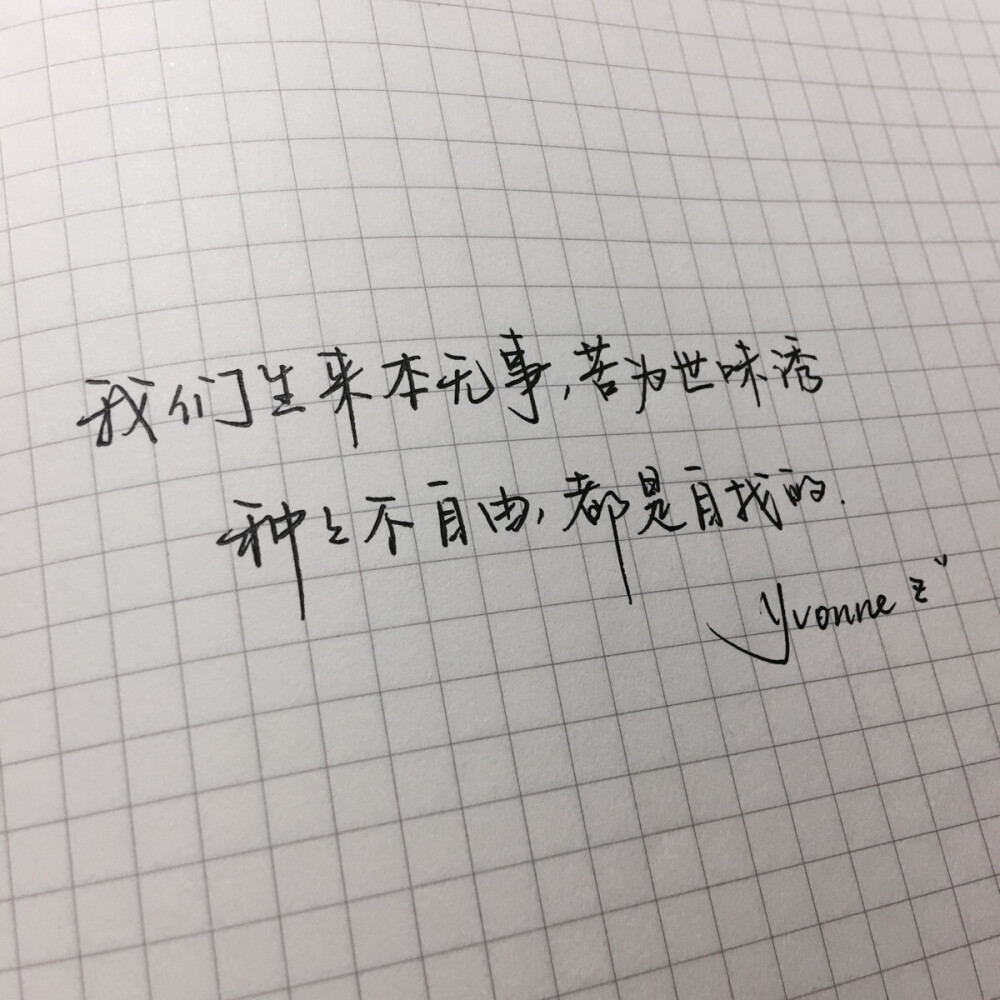 我们生来本无事,苦为世味诱
种々不自由,都是自找的.
Yvonne z